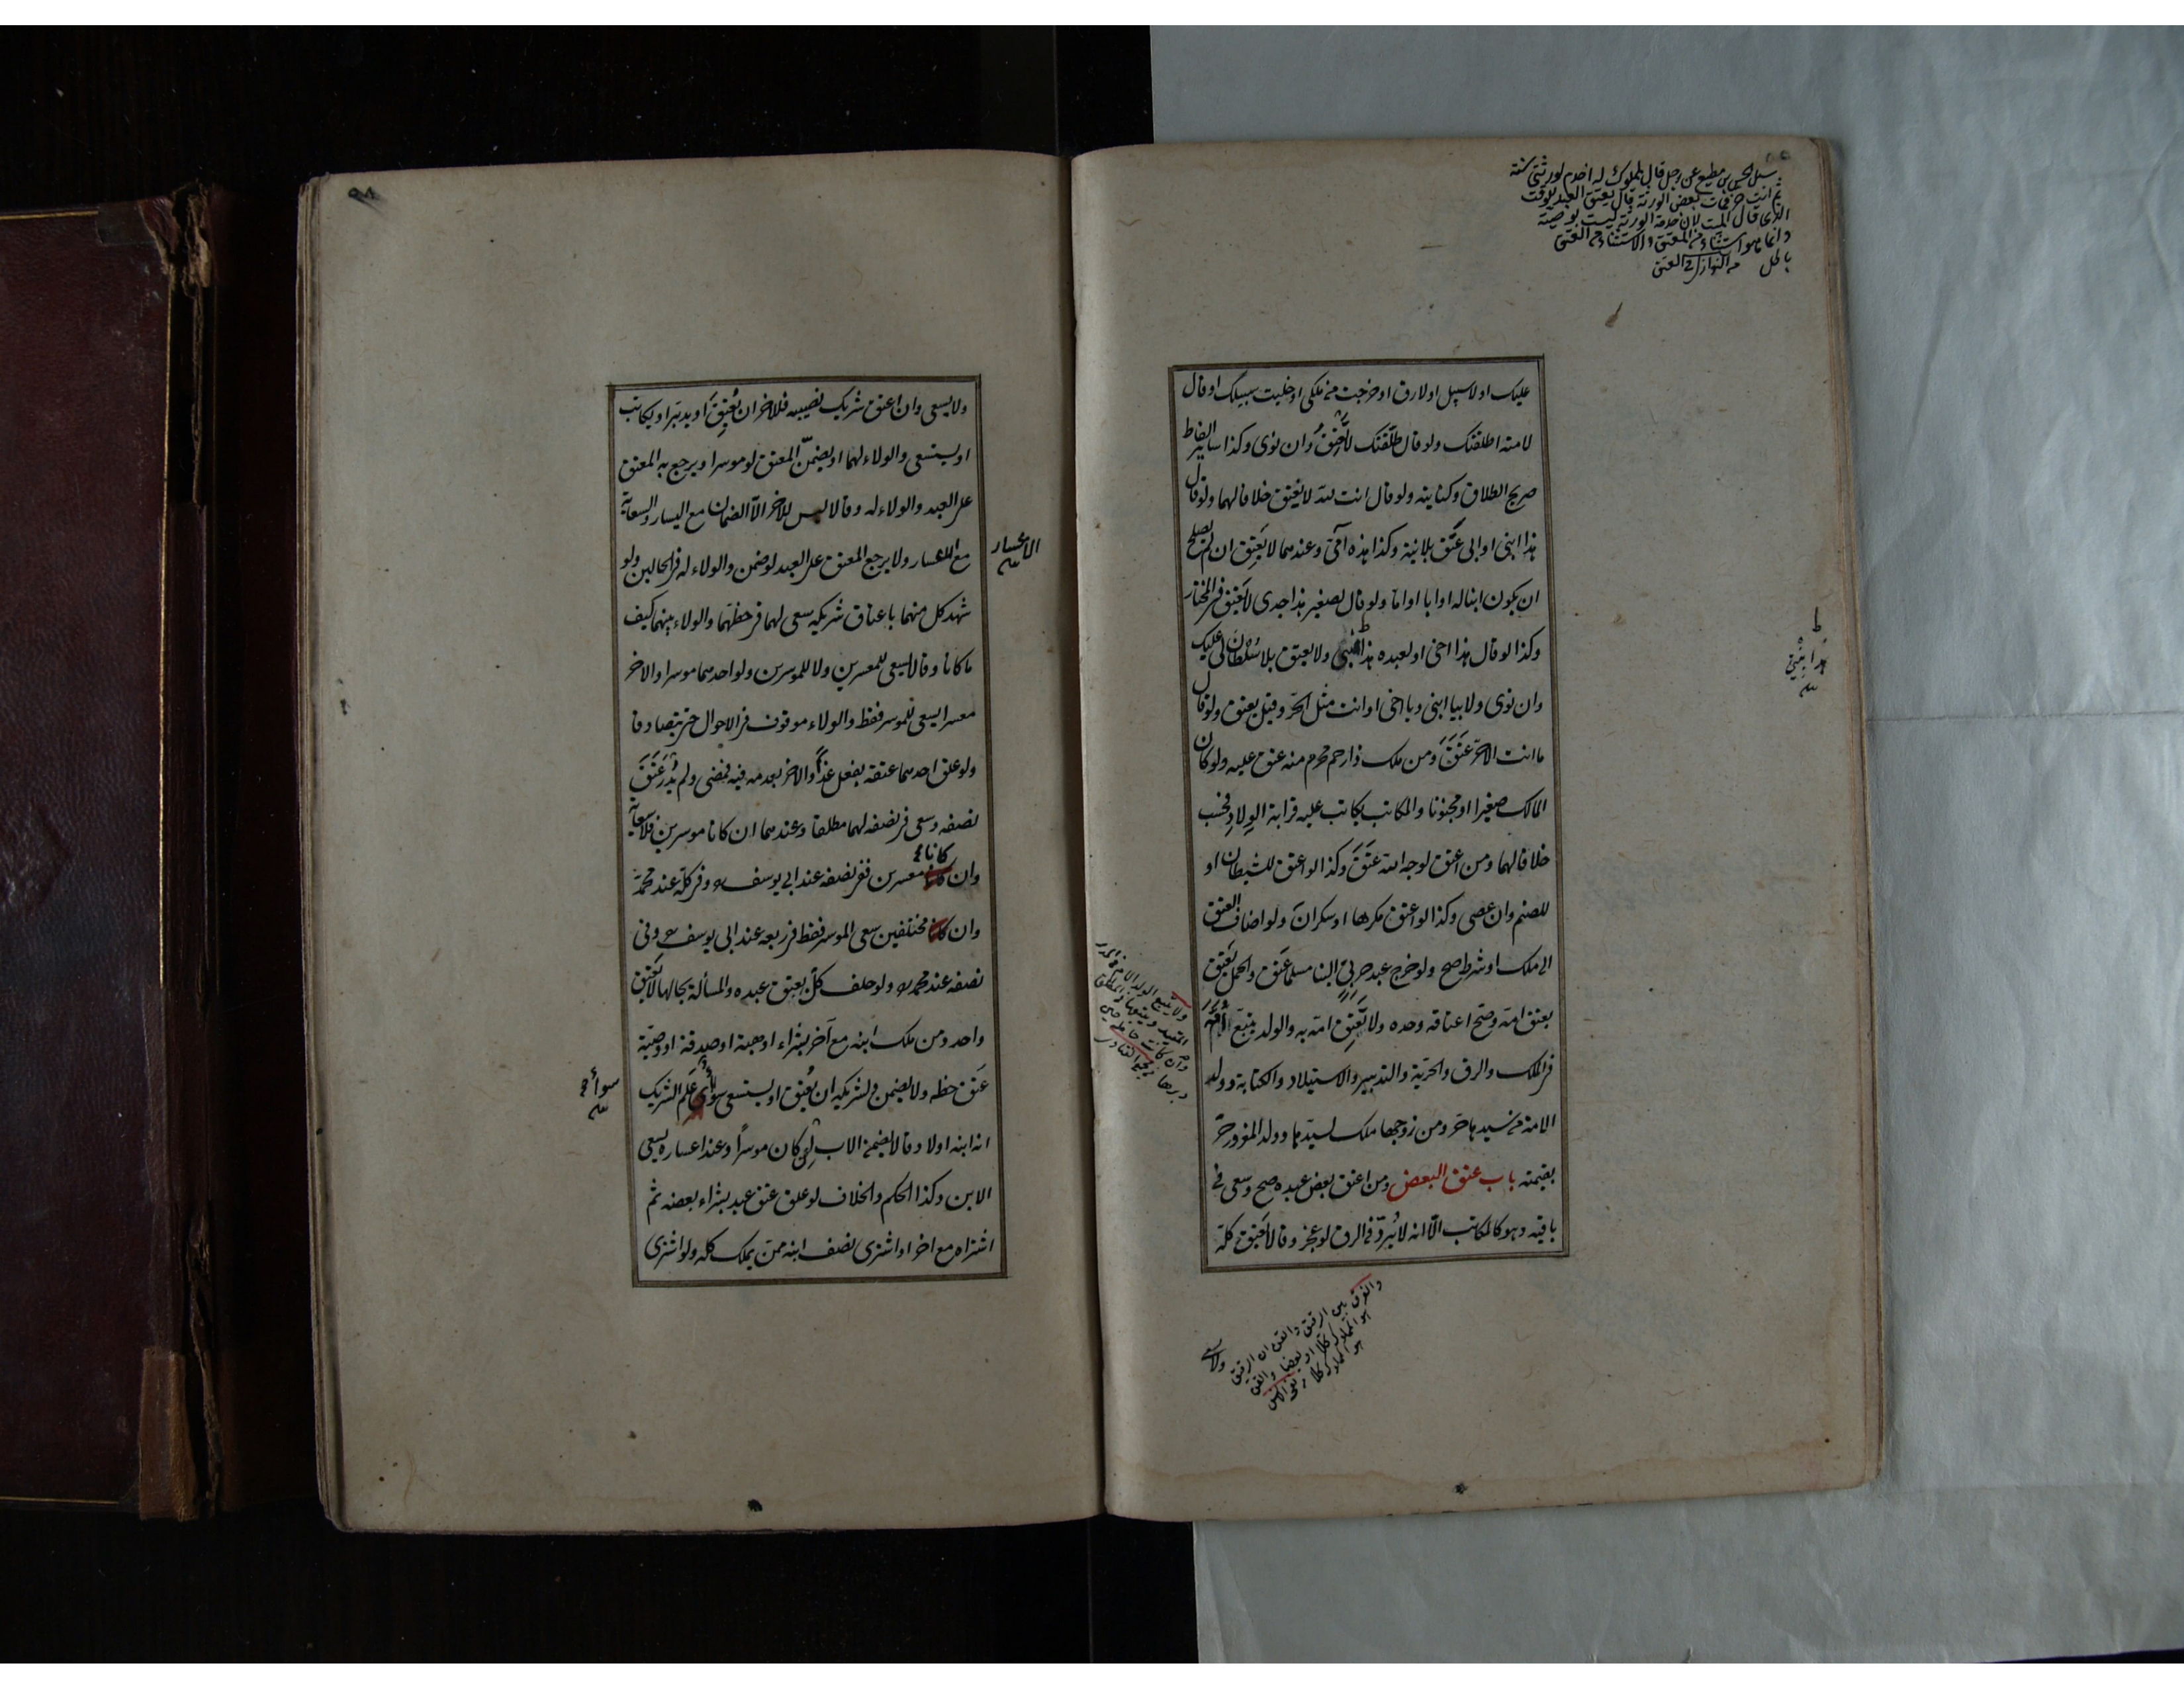 سئل الحسن بن مطيع عن رجل قال لمملوك له اخدم لورثتي سنة
ثم انت حر فمات بعض الورثة قال يعتق العبد بوقت
الذى قال الميت لان خدمة الورثة ليست بوصية
وانما هو استثناء من العتق والاستثناء من العتق
باطل من النوازل فى العتق
عليك او لا سبيل او لا رق او خرجت من ملكى او خليت سبيلك او قال
لامته اطلقتك ولو قال طلقتك لا تعتق وان نوى وكذا سائر الفاظ
صريح الطلاق وكنايته ولو قال انت لله لا يعتق خلافا لهما ولو قال
هذا ابنى او ابى عتق بلا نية وكذا هذه امى وعندهما لا يعتق ان لم يصلح
ان يكون ابنا له او ابا او اما ولو قال لصغير هذا جدى لا يعتق فى المختار
وكذا لو قال هذا اخى او لعبده هذا بنتى ولا يعتق بلا سلطان لى عليك
وان نوى ولا بيا ابنى ويا اخى او انت مثل الحر وقيل يعتق ولو قال
ما انت الا حر عتق ومن ملك ذا رحم محرم منه عتق عليه ولو كان
المالك صغيرا او مجنونا والمكاتب يكاتب عليه قرابة الولاد فحسب
خلافا لهما ومن اعتق لوجه الله عتق وكذا لو اعتق للشيطان او
للصنم وان عصى وكذا لو اعتق مكرها او سكران ولو اضاف العتق
الى ملك او شرط صح ولو خرج عبد حربى الينا مسلما عتق والحمل يعتق
بعتق امه وصح اعتاقه وحده ولا تعتق امه به والولد يتبع امه
فى الملك والرق والحرية والتدبير والاستيلاد والكتابة وولد
الامة من سيدها حر ومن زوجها ملك لسيدها وولد المغرور حر
بقيمته باب عتق البعض ومن اعتق بعض عبده صح وسعى فى
باقيه وهو كالمكاتب الا انه لا يرد فى الرق لو عجز وقالا يعتق كله
هذا بنتى
والفرق بين الرقيق والقن ان الرقيق
هو المملوك كلا او بعضا والقن
هو المملوك كلا
ولا يسعى
ولا يسعى وان اعتق شريك نصيبه فللاخر ان يعتق او يدبر او يكاتب
او يستسعى والولاء لهما او يضمن المعتق لو موسرا ويرجع به المعتق
على العبد والولاء له وقالا ليس للاخر الا الضمان مع اليسار والسعاية
مع الاعسار ولا يرجع المعتق على العبد لو ضمن والولاء له فى الحالين ولو
شهد كل منهما باعتاق شريكه سعى لهما فى حظهما والولاء بينهما كيف
ما كانا وقالا يسعى للمعسرين ولا للموسرين ولو احدهما موسرا والاخر
معسرا يسعى للموسر فقط والولاء موقوف فى الاحوال حتى يتصادقا
ولو علق احدهما عتقه بفعل غدا والاخر بعدمه فيه فمضى ولم يدر عتق
نصفه وسعى فى نصفه لهما مطلقا وعندهما ان كانا موسرين فلا سعاية
وان كانا معسرين ففى نصفه عند ابى يوسف وفى كله عند محمد
وان كانا مختلفين سعى للموسر فقط فى ربعه عند ابى يوسف وفى
نصفه عند محمد ولو حلف كل بعتق عبده والمسألة بحالها لا يعتق
واحد ومن ملك ابنه مع آخر بشراء او هبة او صدقة او وصية
عتق حظه ولا يضمن ولشريكه ان يعتق او يستسعى سواء علم الشريك
انه ابنه اولا وقالا يضمن الاب ان كان موسرا وعند اعساره يسعى
الابن وكذا الحكم والخلاف لو علق عتق عبد بشراء بعضه ثم
اشتراه مع اخر او اشترى نصف ابنه ممن يملك كله ولو اشترى
الاعسار
سواء